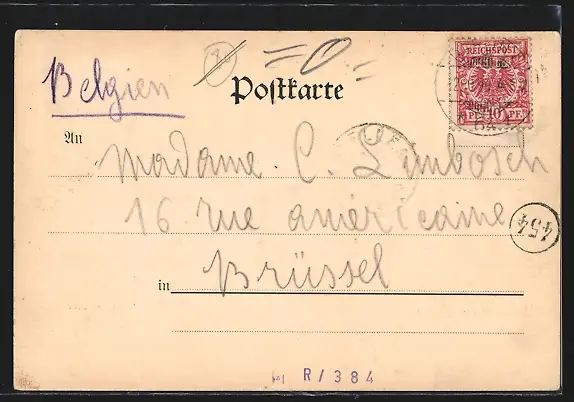 Belgien
Postkarte
REICHSPOST
10 PF
An
Madame C. Limbosch
16 rue américaine
454
in Brüssel
R/384